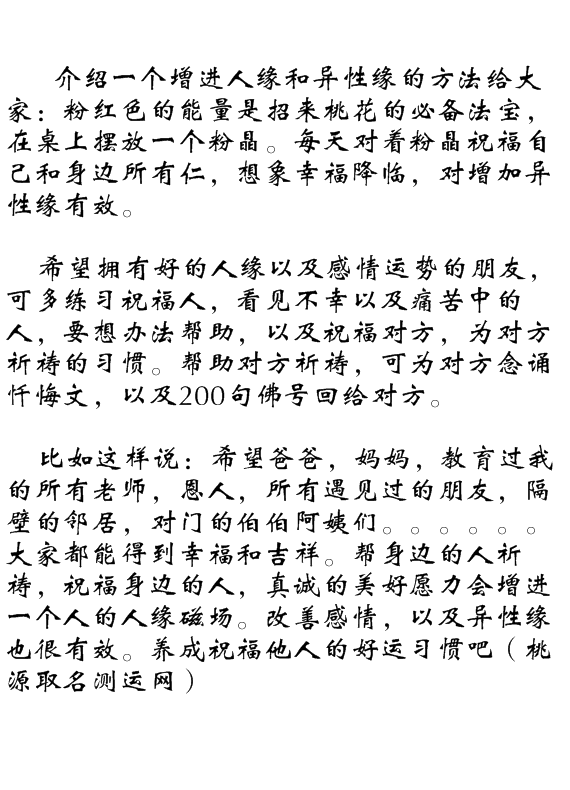 介绍一个增进人缘和异性缘的方法给大
家：粉红色的能量是招来桃花的必备法宝，
在桌上摆放一个粉晶。每天对着粉晶祝福自
己和身边所有仁，想象幸福降临，对增加异
性缘有效。
希望拥有好的人缘以及感情运势的朋友，
可多练习祝福人，看见不幸以及痛苦中的
人，要想办法帮助，以及祝福对方，为对方
祈祷的习惯。帮助对方祈祷，可为对方念诵
忏悔文，以及200句佛号回给对方。
比如这样说：希望爸爸，妈妈，教育过我
的所有老师，恩人，所有遇见过的朋友，隔
壁的邻居，对门的伯伯阿姨们。。。。。。
大家都能得到幸福和吉祥。帮身边的人祈
祷，祝福身边的人，真诚的美好愿力会增进
一个人的人缘磁场。改善感情，以及异性缘
也很有效。养成祝福他人的好运习惯吧（桃
源取名测运网）